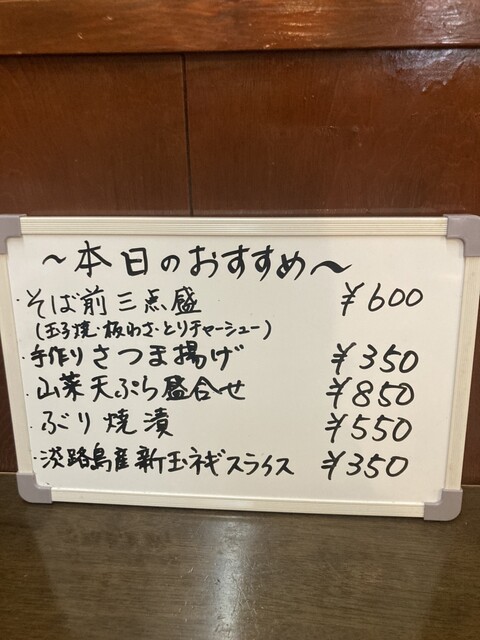 ～本日のおすすめ～
・そば前三点盛 ¥600
(玉子焼・板わさ・とりチャーシュー)
・手作りさつま揚げ ¥350
・山菜天ぷら盛合せ ¥850
・ぶり焼漬 ¥550
・淡路島産新玉ネギスライス ¥350